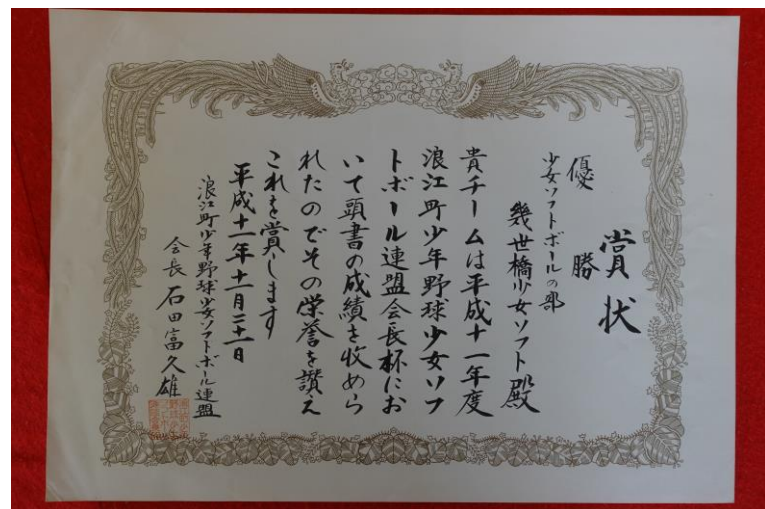 賞状
優勝
少女ソフトボールの部
幾世橋少女ソフト殿
貴チームは平成十一年度
浪江町少年野球少女ソフ
トボール連盟会長杯にお
いて頭書の成績を收めら
れたのでその栄誉を讃え
これを賞します
平成十一年十一月二十一日
浪江町少年野球少女ソフトボール連盟
会長 石田富久雄